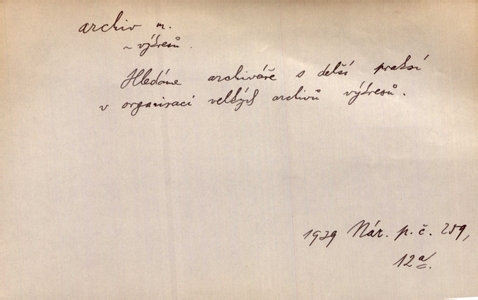 archiv m.
~ výkresů
Hledáme archiváře s delší praksí
v organisaci velkých archivů výkresů.
1929 Nár. p. č. 259,
12a/c.